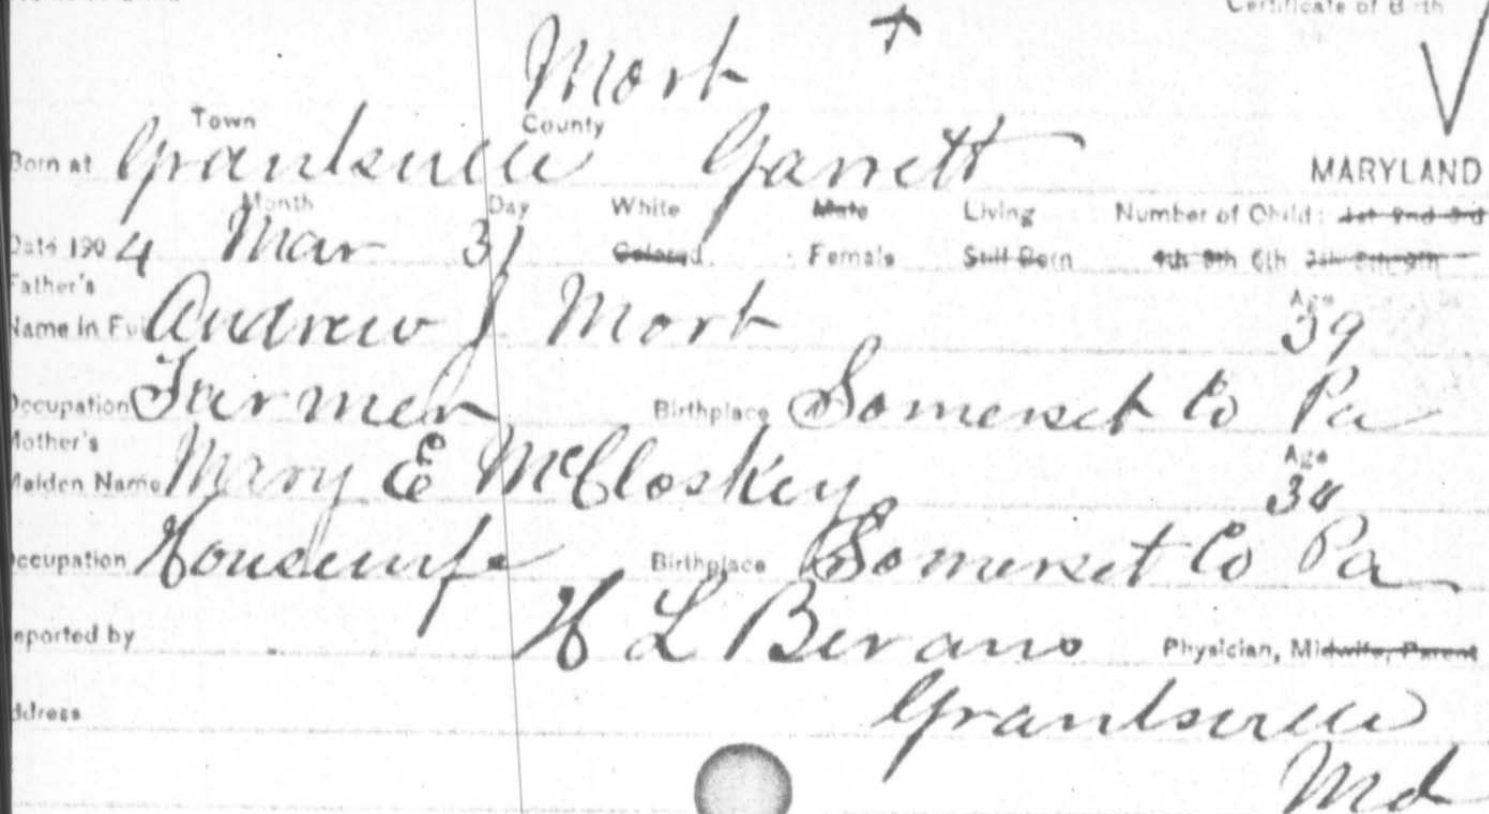 Certificate of Birth
Mort
Town County
Born at Grantsville Garrett MARYLAND
Month Day White Male Living Number of Child: 1st 2nd 3rd
Date 1904 Mar 31 Colored. Female Still Born 4th 5th 6th 7th 8th 9th
Father's Age
Name in Full Andrew J Mort 39
Occupation Farmer Birthplace Somerset Co Pa
Mother's Age
Maiden Name Mary E McCloskey
Occupation Housewife Birthplace Somerset Co Pa
Reported by H L Bevans Physician, Midwife, Parent
Address Grantsville
Md